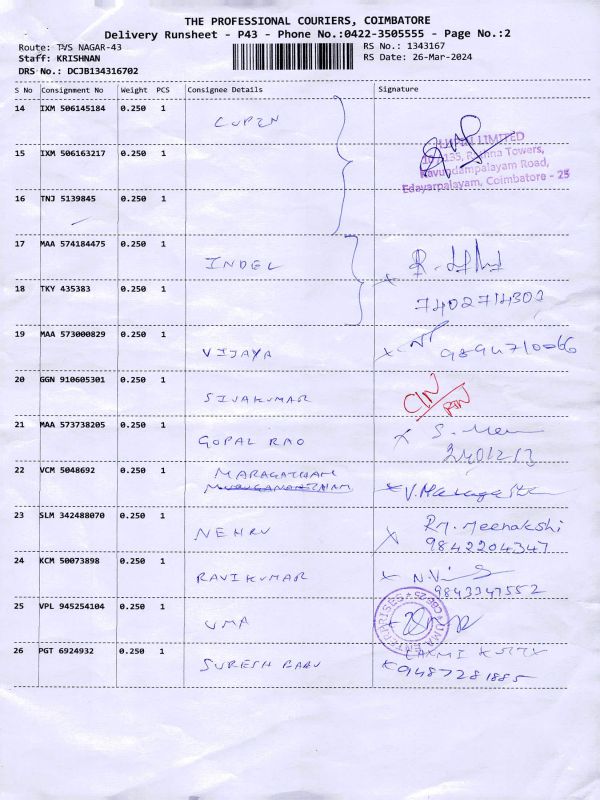 THE PROFESSIONAL COURIERS, COIMBATORE
Delivery Runsheet - P43 - Phone No.:0422-3505555 - Page No.:2
Route: TVS NAGAR-43
RS No.: 1343167
Staff: KRISHNAN
RS Date: 26-Mar-2024
DRS No.: DCJB134316702
S No Consignment No Weight PCS Consignee Details Signature
14 IXM 506145184 0.250 1
LIMITED
15 IXM 506163217 0.250 1
Towers,
Kavundampalayam Road,
Edayarpalayam, Coimbatore - 25
16 TNJ 5139845 0.250 1
17 MAA 574184475 0.250 1 INDEL
18 TKY 435383 0.250 1
7402714303
19 MAA 573000829 0.250 1 VIJAYA
9894710066
20 GGN 910605301 0.250 1 SIVAKUMAR
21 MAA 573738205 0.250 1 GOPAL RAO
22 VCM 5048692 0.250 1 MARAGATHAM
23 SLM 342488070 0.250 1 NEHRU RM. Meenakshi
9842204347
24 KCM 50073898 0.250 1 RAVIKUMAR
9843347552
25 VPL 945254104 0.250 1 UMA
UMA ENTERPRISES
26 PGT 6924932 0.250 1 SURESH BABU LAXMI
9487281885